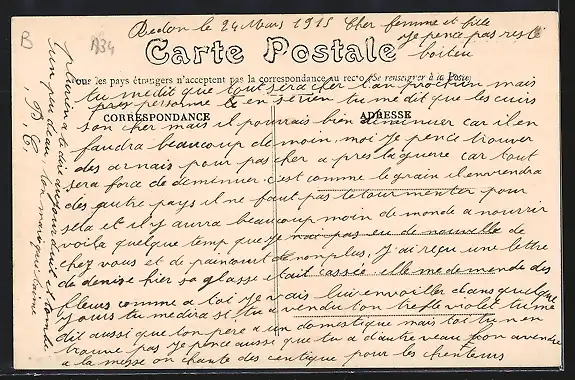 Redon le 24 Mars 1915 Cher femme et fille
Je pence pas reste
boiteu
B
A34
Carte Postale
Tous les pays étrangers n'acceptent pas la correspondance au recto (Se renseigner à la Poste)
tu me dit que tout sera cher l'an prochien mais
pres personne le en serien tu me dit que les cuirs
CORRESPONDANCE
ADRESSE
son cher mais il pourrais bien diminuer car il en
faudra beaucoup de moin, moi je pence trouver
des arnais pour pas cher a pres la guerre car tout
sera force de deminuer c'est comme le grain il en viendra
des autre pays il ne faut pas te tourmenter pour
sela et il y aurra beaucoup moin de monde a nourrir
voila quelque temp que je nai pas eu de nouvelle de
chez vous et de paincourt non plus, J'ai reçu une lettre
de denise hier sa glasse etait cassée elle me demende des
fleurs comme a toi je vais lui envoiller dans quelque
Jours tu me dira si tu a vendu ton trefle violet tu me
dit aussi que ton père a un domestique mais toi tu n'en
trouve pas je pence aussi que tu a d'autre veau bon a vendre
a la messe on chante des centique pour les chenteurs
rien a te dire aujourduit et tombe
un peu d'eau, ton mari qui t'aime
B, C,